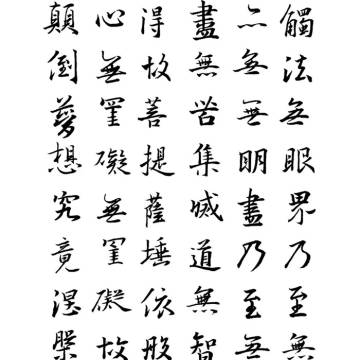 觸法無眼界乃至無
亦無無明盡乃至無
盡無苦集滅道無智
得故菩提薩埵依般
心無罣礙無罣礙故
顛倒夢想究竟涅槃